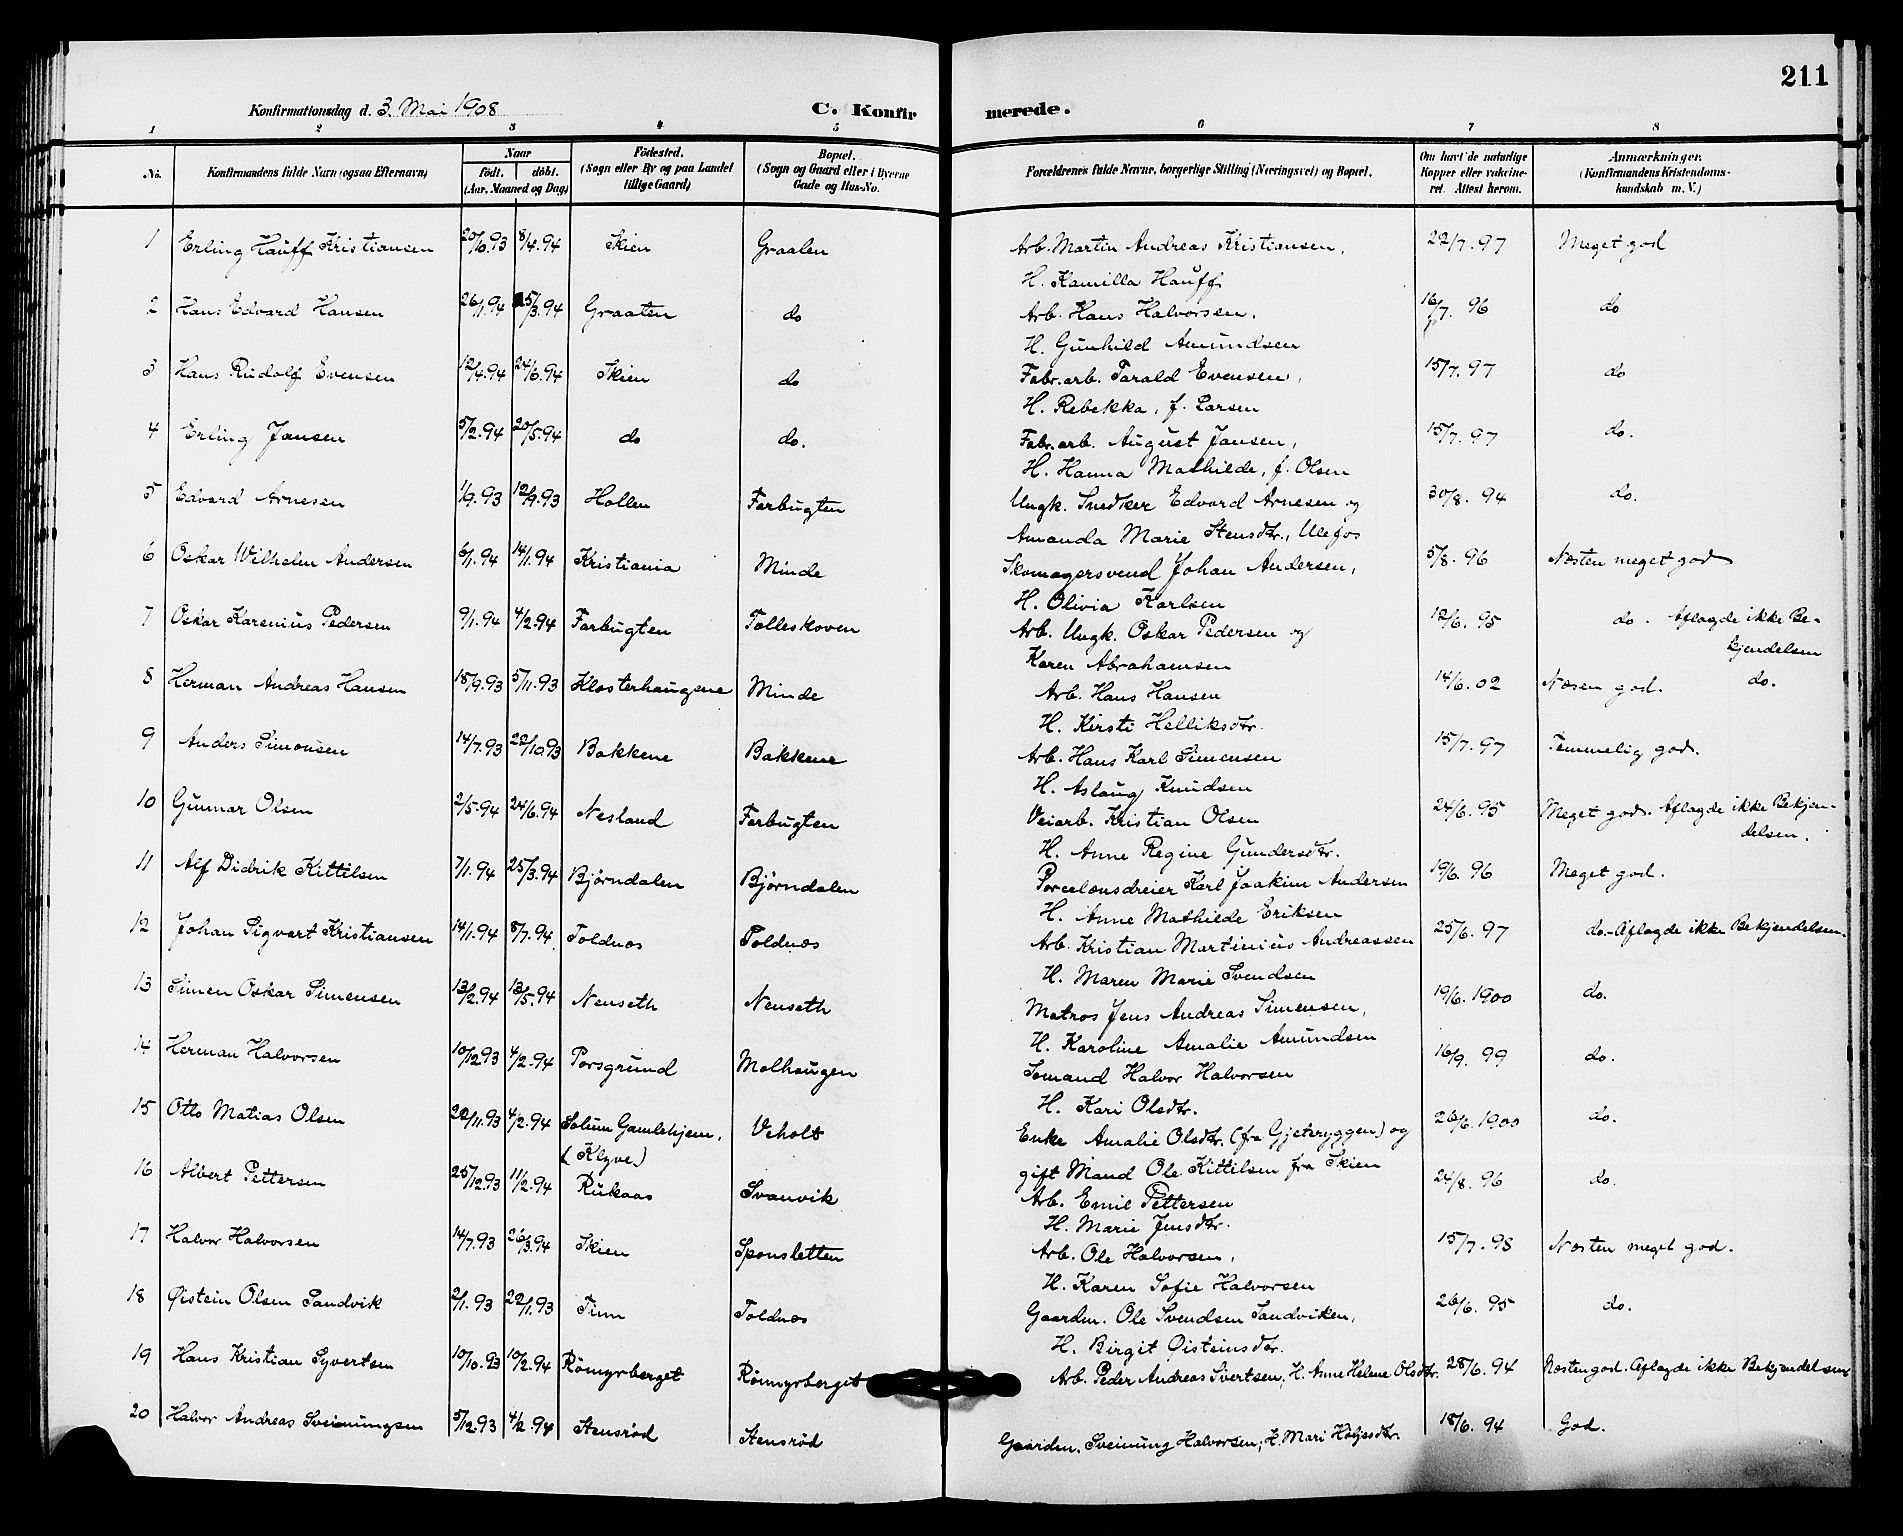 211
Konfirmationsdag d. 3. Mai 1908
C. Konfirmerede.
1 2 3 4 5 6 7 8
No.
Konfirmandens fulde Navn (ogsaa Efternavn)
Naar
födt. döbt.
(Aar, Maaned og Dag)
Födested.
(Sogn eller By og paa Landet
tillige Gaard)
Bopæl.
(Sogn og Gaard eller i Byerne
Gade og Hus-No.
Forældrenes fulde Navne, borgerlige Stilling (Næringsvei) og Bopæl.
Om havt de naturlige
Kopper eller vaccine-
ret. Attest herom.
Anmærkninger.
(Konfirmandens Kristendoms-
kundskab m. V.)
1 Erling Hauff Kristiansen 20/6.93 8/4.94 Skien Graaten Arb. Martin Andreas Kristiansen, 22/7.97 Meget god
H. Kamilla Hauff
2 Hans Edvard Hansen 26/1.94 25/3.94 Graaten do Arb. Hans Halvorsen. 16/7. 96 do
H. Gunhild Amundsen
3 Hans Rudolf Evensen 12/4.94 24/6.94 Skien do Fabr.arb. Tarald Evensen, 15/7.97 do
H. Rebekka, f. Larsen
4 Erling Jansen 5/2.94 20/5.94 do do. Fabr.arb. August Jansen, 15/7.97 do.
H. Hanna Mathilde, f. Olsen
5 Edvard Arnesen 1/9.93 12/9.93 Hollen Farbugten Ungk. Snedker Edvard Arnesen og 30/8.94 do.
Amanda Marie Stensdtr., Ulefos
6 Oskar Wilhelm Andersen 6/1.94 14/1.94 Kristiania Minde Skomagersvend Johan Andersen, 5/8.96 Næsten meget god
H. Olivia Karlsen
7 Oskar Karenius Pedersen 9/1.94 4/2.94 Farbugten Tolleskoven Arb. Ungk. Oskar Pedersen og 12/6.95 do. Aflagde ikke Be-
kjendelsen
Karen Abrahamsen
8 Herman Andreas Hansen 18/9.93 5/11.93 Klosterhaugene Minde Arb. Hans Hansen 14/6.02 Næsen god. do.
H. Kirsti Helliksdtr.
9 Anders Simonsen 14/7.93 22/10.93 Bakkene Bakkene Arb. Hans Karl Simensen 15/7.97 Temmelig god.
H. Aslaug Knudsen
10 Gunnar Olsen 2/5.94 24/6.94 Nesland Farbugten Veiarb. Kristian Olsen 24/6.95 Meget god. Aflagde ikke Bekjen-
delsen.
H. Anne Regine Gundersdtr.
11 Alf Didrik Kittilsen 7/1.94 25/3.94 Bjørndalen Bjørndalen Porcelænsdreier Karl Joakim Andersen 19/6.96 Meget god.
H. Anne Mathilde Eriksen
12 Johan Sigvart Kristiansen 14/1.94 8/7.94 Toldnæs Toldnæs Arb. Kristian Martinius Andreassen 25/6.97 do. Aflagde ikke Bekjendelsen.
H. Maren Marie Svendsen
13 Simen Oskar Simensen 13/2.94 13/5.94 Nenseth Nenseth Matros Jens Andreas Simensen, 19/6.1900 do.
H. Karoline Amalie Amundsen
14 Herman Halvorsen 10/12.93 4/2.94 Porsgrund Molhaugen Sømand Halvor Halvorsen 16/9.99 do.
H. Kari Olsdtr.
15 Otto Matias Olsen 22/11.93 4/2.94 Solum Gamlehjem. Veholt Enke Amalie Olsdtr. (fra Gjeteryggen) og 26/6.1900 do.
(Klyve) gift Mand Ole Kittilsen fra Skien
16 Albert Pettersen 25/12.93 11/2.94 Rukaas Svanvik Arb. Emil Pettersen 24/8.96 do.
H. Marie Jensdtr.
17 Halvor Halvorsen 14/7.93 26/3.94 Skien Sponsletten Arb. Ole Halvorsen, 15/7.98 Næsten meget god.
H. Karen Sofie Halvorsen
18 Øistein Olsen Sandvik 2/1.93 22/1.93 Tinn Toldnæs Gaardm. Ole Svendsen Sandviken, 26/6.95 do.
H. Birgit Øisteinsdtr.
19 Hans Kristian Syvertsen 10/10.93 10/2.94 Römyrberget Römyrberget Arb. Peder Andreas Sivertsen, H. Anne Helene Olsdtr. 28/6.94 Næsten god. Aflagde ikke Bekjendelsen
20 Halvor Andreas Sveinungsen 5/12.93 4/2.94 Stensrød Stensrød Gaardm. Sveinung Halvorsen, H. Mari Halvorsdtr. 18/6.94 God.